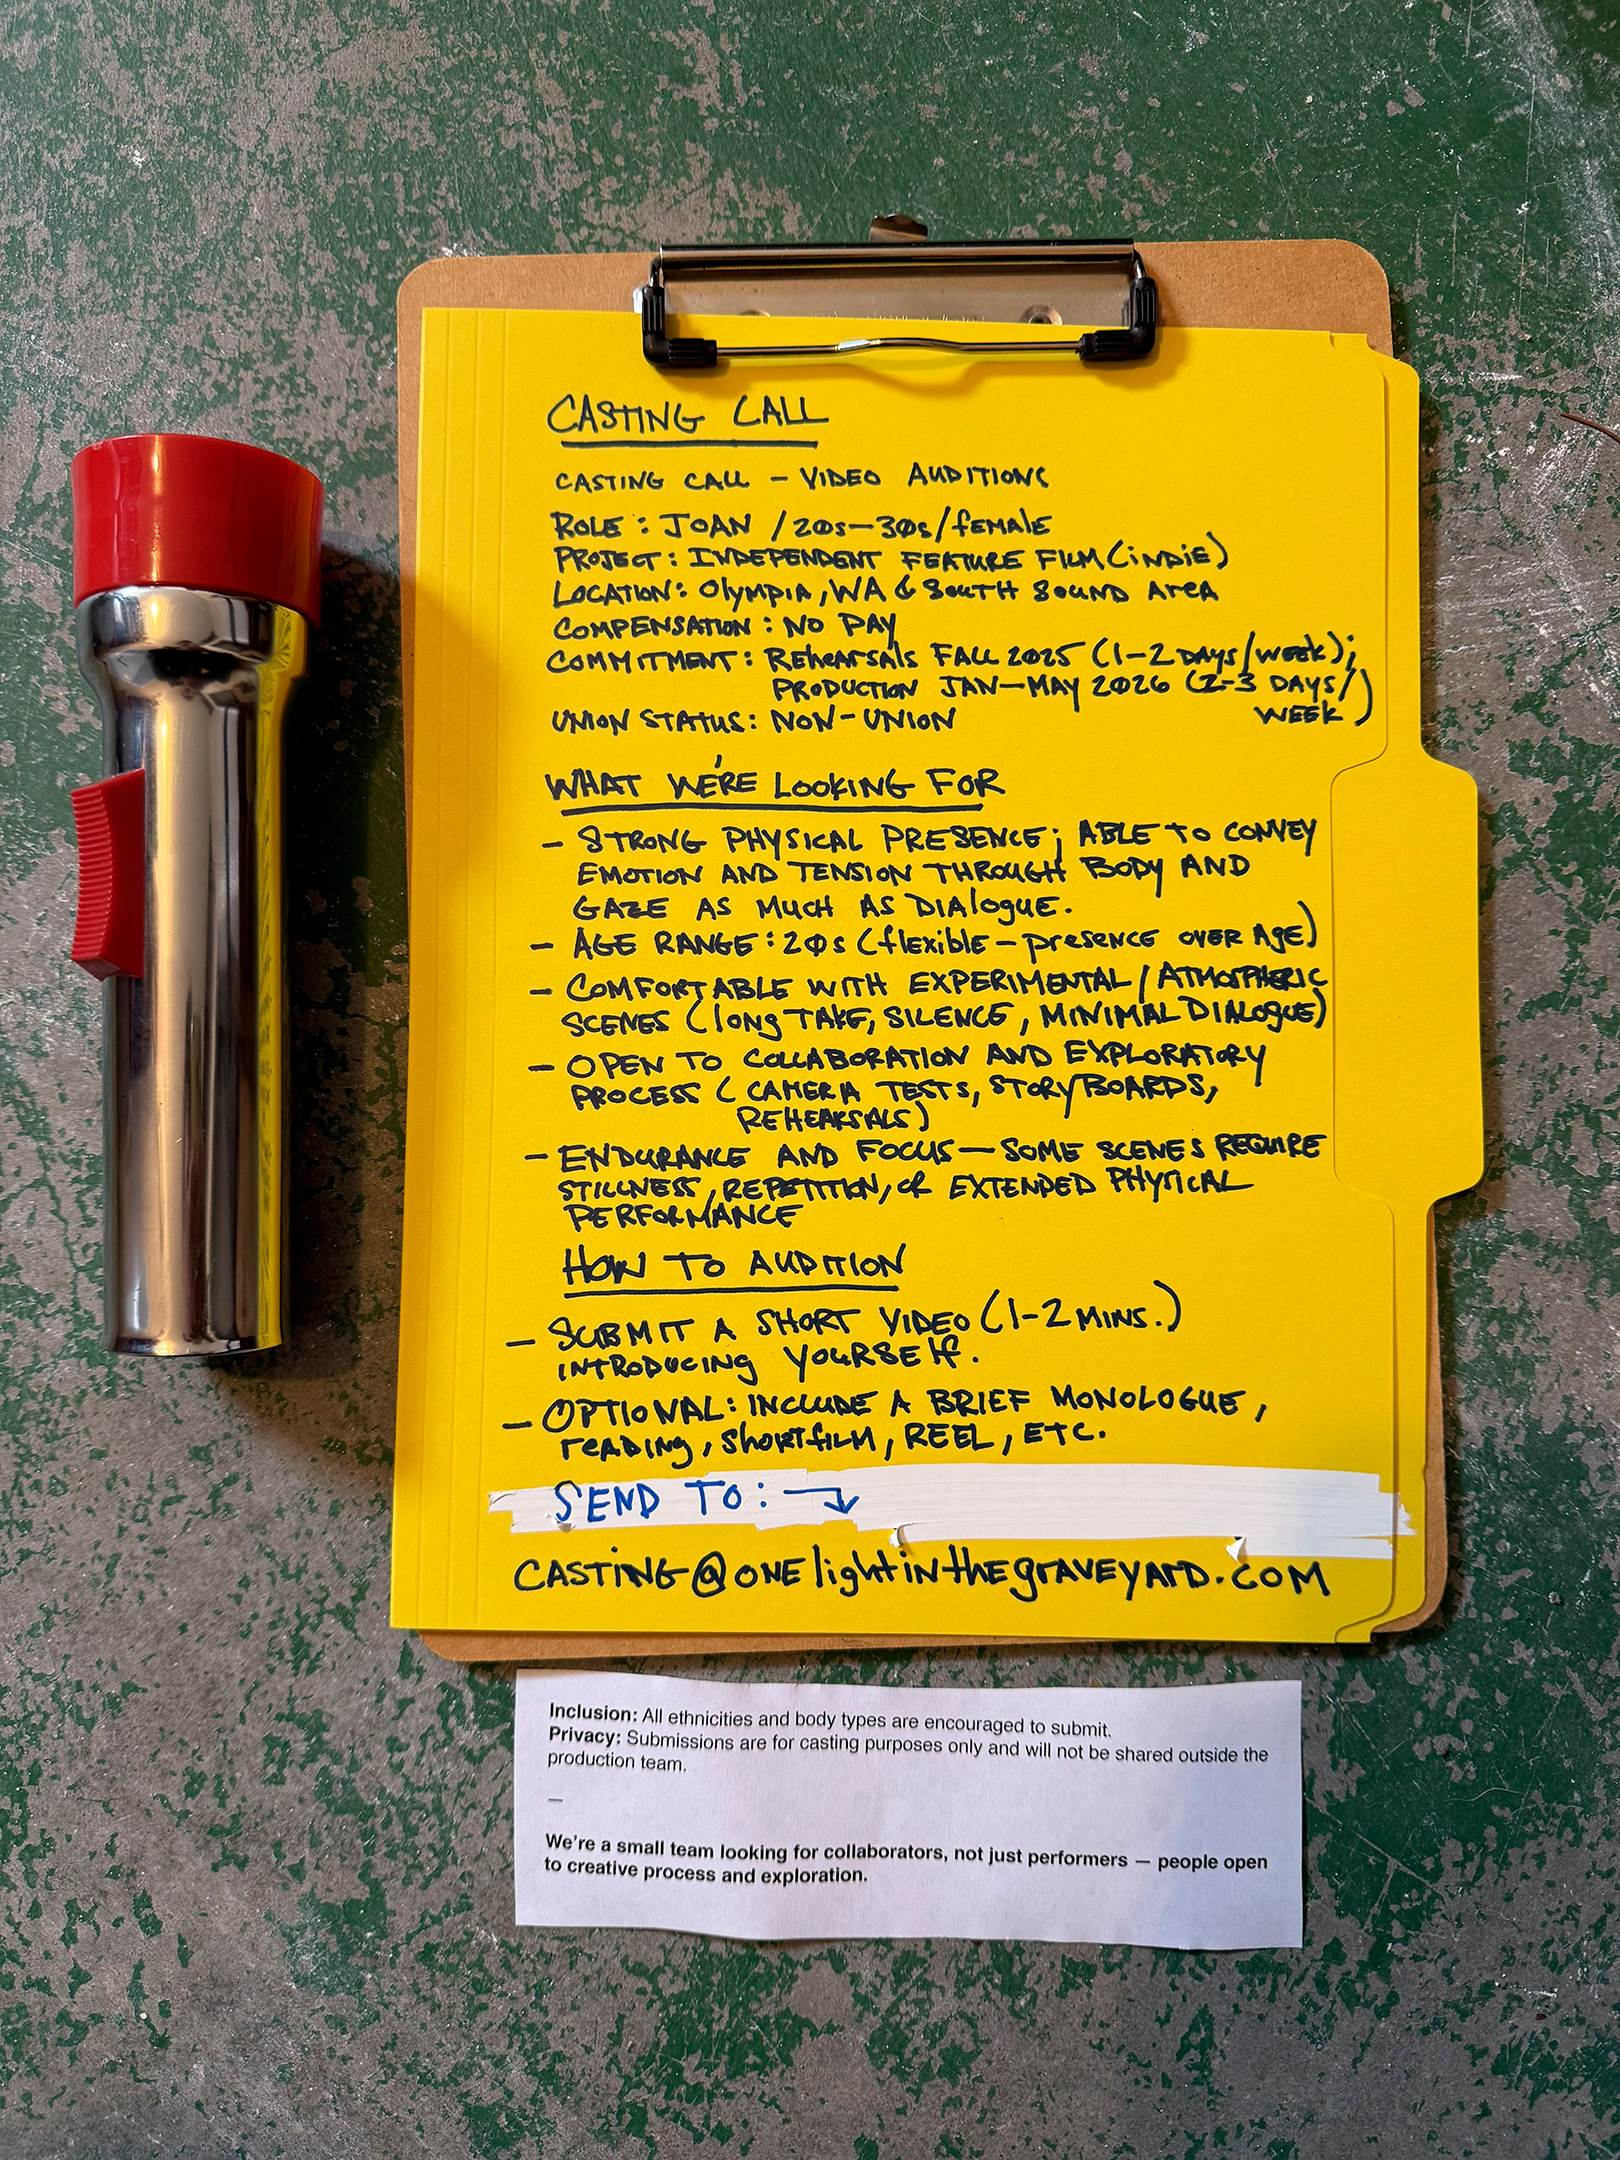 CASTING CALL
CASTING CALL – VIDEO AUDITIONS
ROLE: JOAN / 20s–30s/female
PROJECT: INDEPENDENT FEATURE FILM (indie)
LOCATION: Olympia, WA & South Sound Area
COMPENSATION: NO PAY
COMMITMENT: Rehearsals FALL 2025 (1–2 DAYS/week);
PRODUCTION JAN–MAY 2026 (2-3 DAYS/
WEEK)
UNION STATUS: NON-UNION
WHAT WE'RE LOOKING FOR
– STRONG PHYSICAL PRESENCE; ABLE TO CONVEY
EMOTION AND TENSION THROUGH BODY AND
GAZE AS MUCH AS DIAlogue.
– AGE RANGE: 20s (flexible – presence over Age)
– COMFORTABLE WITH EXPERIMENTAL / ATMOSPHERIC
SCENES (long TAKE, SILENCE, MINIMAL DIALOGUE)
– OPEN TO COLLABORATION AND EXPLORATORY
PROCESS (CAMERA TESTS, STORYBOARDS,
REHEARSALS)
– ENDURANCE AND FOCUS – SOME SCENES REQUIRE
STILLNESS, REPETITION, or EXTENDED PHYSICAL
PERFORMANCE
HOW TO AUDITION
– SUBMIT A SHORT VIDEO (1–2 MINS.)
INTRODUCING YOURSELF.
– OPTIONAL: INCLUDE A BRIEF MONOLOGUE,
reading, short film, REEL, ETC.
SEND TO: →
CASTING@onelightinthegraveyard.com
Inclusion: All ethnicities and body types are encouraged to submit.
Privacy: Submissions are for casting purposes only and will not be shared outside the
production team.
—
We're a small team looking for collaborators, not just performers — people open
to creative process and exploration.